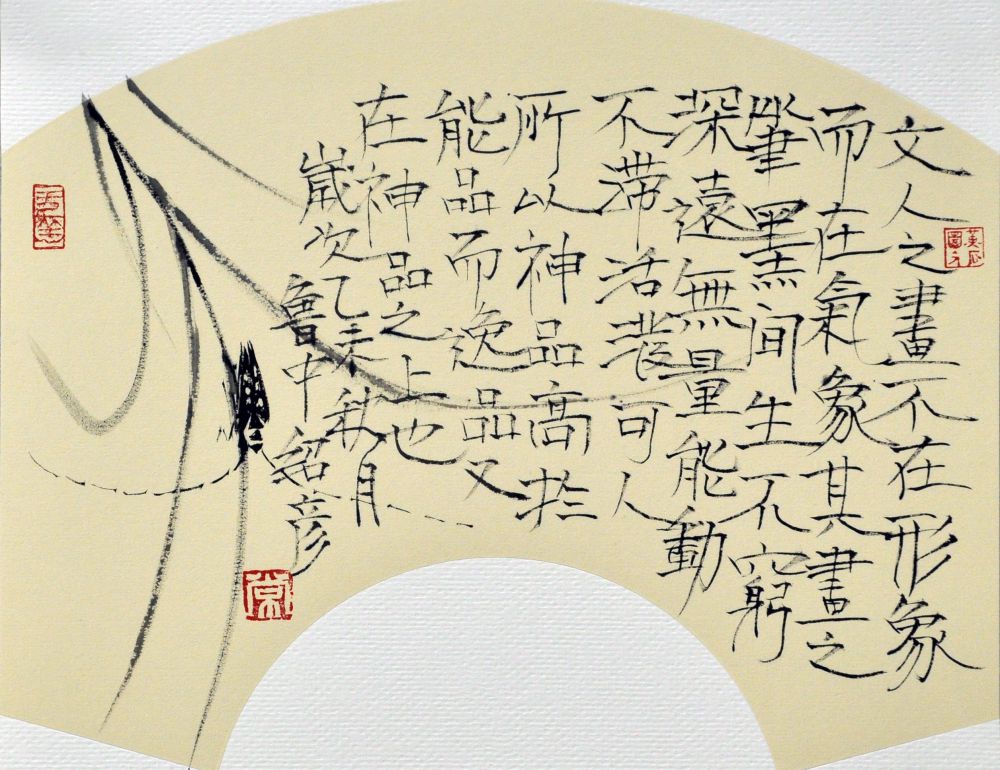 文人之畫不在形象
而在氣象其畫之
筆墨间生不窮
深遠無量能動
不滯活潑可人
所以神品高扵
能品而逸品又
在神品之上也
歲次乙未秋月
魯中紹彦